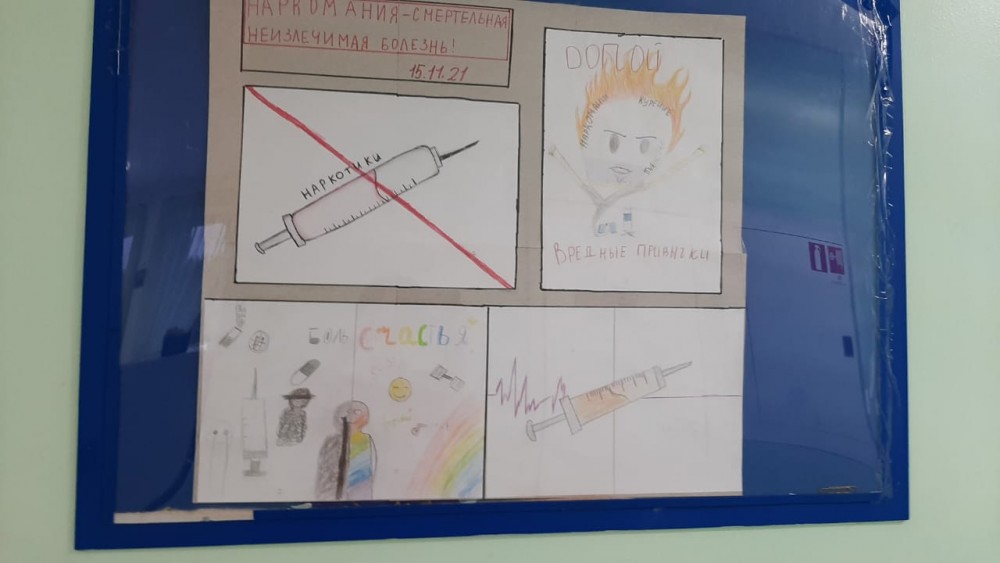 НАРКОМАНИЯ-СМЕРТЕЛЬНАЯ
НЕИЗЛЕЧИМАЯ БОЛЕЗНЬ!
15.11.21
НАРКОТИКИ
ДОЛОЙ
НАРКОМАНИЯ
КУРЕНИЕ
ВРЕДНЫЕ ПРИВЫЧКИ
Боль счастья